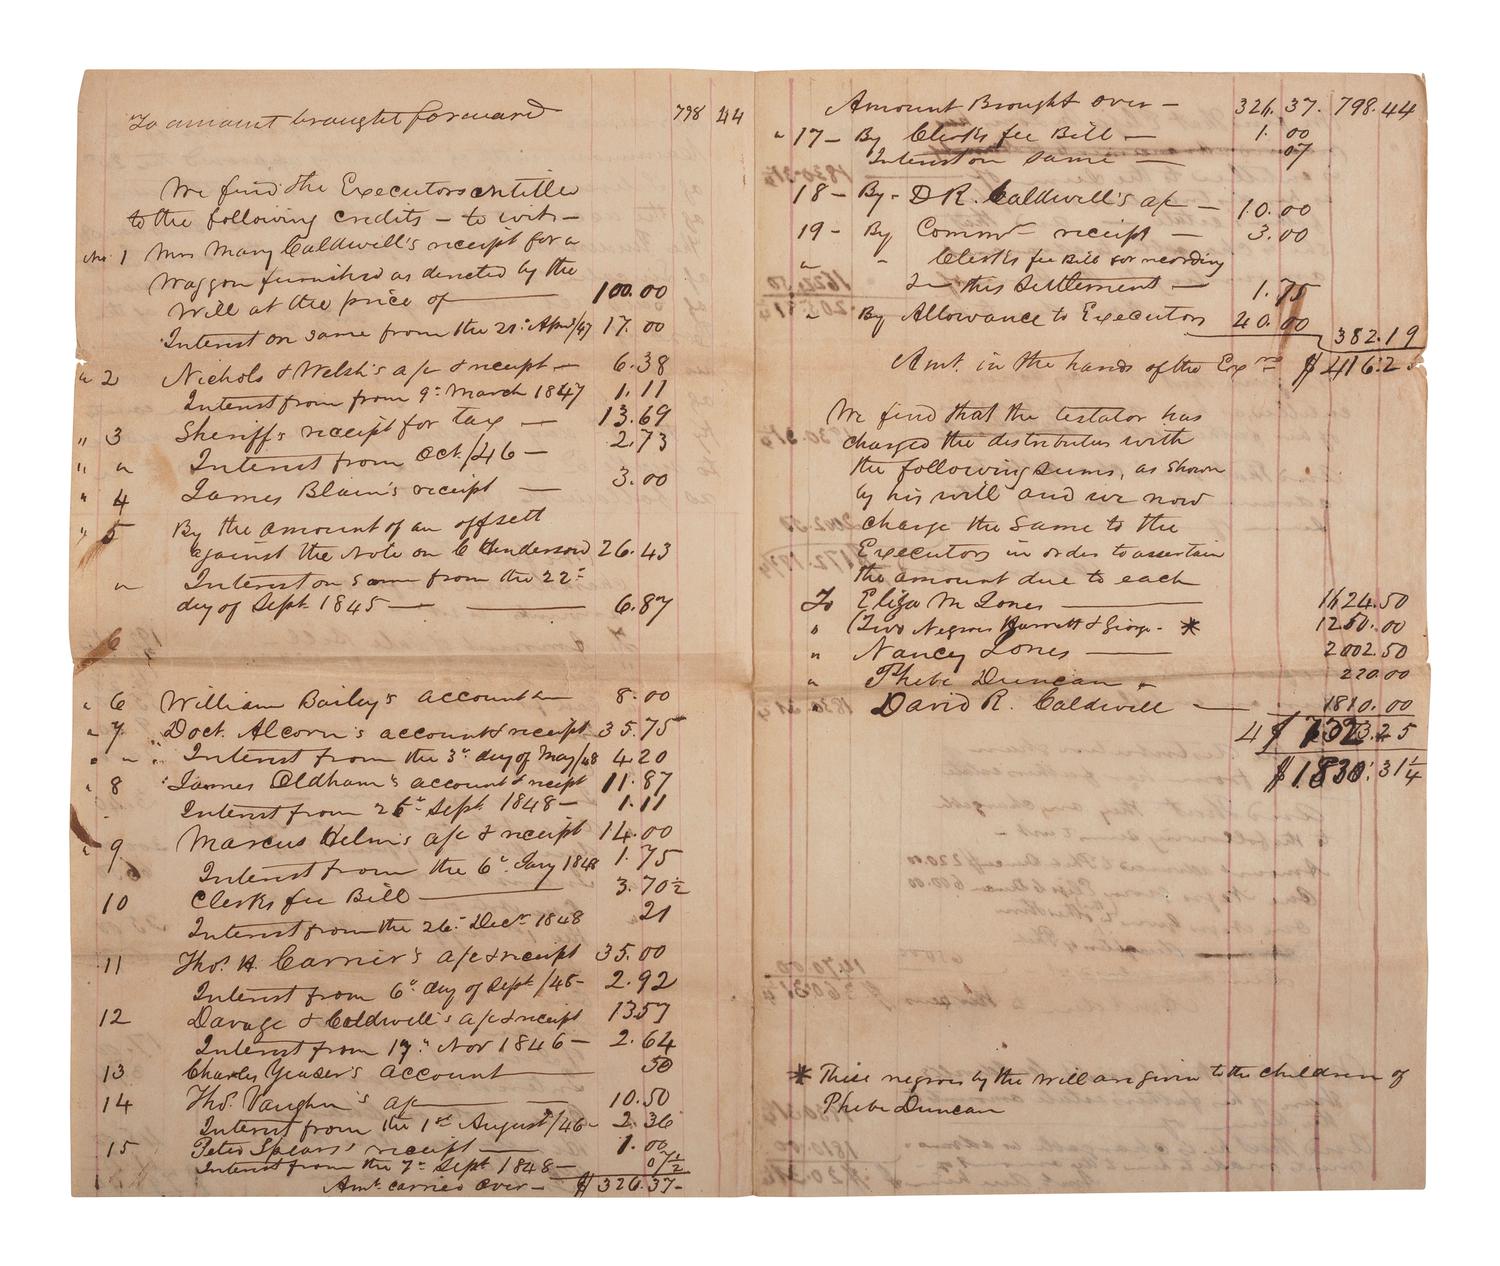 To amount brought forward 798 44
We find the Executors entitled
to the following credits - to wit -
No. 1 Mrs Mary Caldwell's receipt for a
Waggon furnished as directed by the
Will at the price of — 100.00
Interest on same from the 21st April/47 17.00
" 2 Nichols & Welsh's a/c & receipt — 6.38
Interest from from 9th March 1847 1.11
" 3 Sheriff's receipt for tax — 13.69
" " Interest from Oct./46 — 2.73
" 4 James Blain's receipt — 3.00
" 5 By the amount of an offsett
against the Note on C Henderson 26.43
" Interest on same from the 22d
day of Sept. 1845 — 6.87
6
" 6 William Bailey's account 8.00
" 7 Doct. Alcorn's account & receipt 35.75
" " Interest from the 3d day of May/48 4.20
" 8 James Oldham's account & receipt 11.87
Interest from 26th Sept. 1848 — 1.11
" 9 Marcus Helm's a/c & receipt 14.00
Interest from the 6th Jany 1848 1.75
10 Clerks fee Bill — 3.70½
Interest from the 26th Decr 1848 21
11 Thos. H. Carrier's a/c & receipt 35.00
Interest from 6th day of Sept/45 - 2.92
12 Davage & Caldwell's a/c & receipt 13.57
Interest from 17th Nov 1846 — 2.64
13 Charles Yeaser's account — 50
14 Thos. Vaughn's a/c — 10.50
Interest from the 1st August/46 - 2.36
15 Peter Spears' receipt — 1.00
Interest from the 7th Sept. 1848 — 07½
Amt. carried over — $326.37-
Amount Brought over — 326.37. 798.44
" 17 - By Clerks fee Bill — 1.00
Interest on same — 07
18 - By - D R. Caldwell's a/c — 10.00
19 - By Commr receipt — 3.00
" " Clerks fee Bill for recording
this Settlement — 1.75
" By Allowance to Executors 40.00 382.19
Amt. in the hands of the Exrs $416.25
We find that the testator has
charged the distributees with
the following sums, as shown
by his will and we now
charge the same to the
Executors in order to assertain
the amount due to each
To Eliza M Jones — 1624.50
" (Two Negroes Harriett & George - * 1250.00
" Nancy Jones — 2002.50
" Phebe Duncan " 220.00
David R. Caldwell — 1810.00
4 $ 7323.25
$1830.31¼
* These negroes by the will are given to the children of
Phebe Duncan